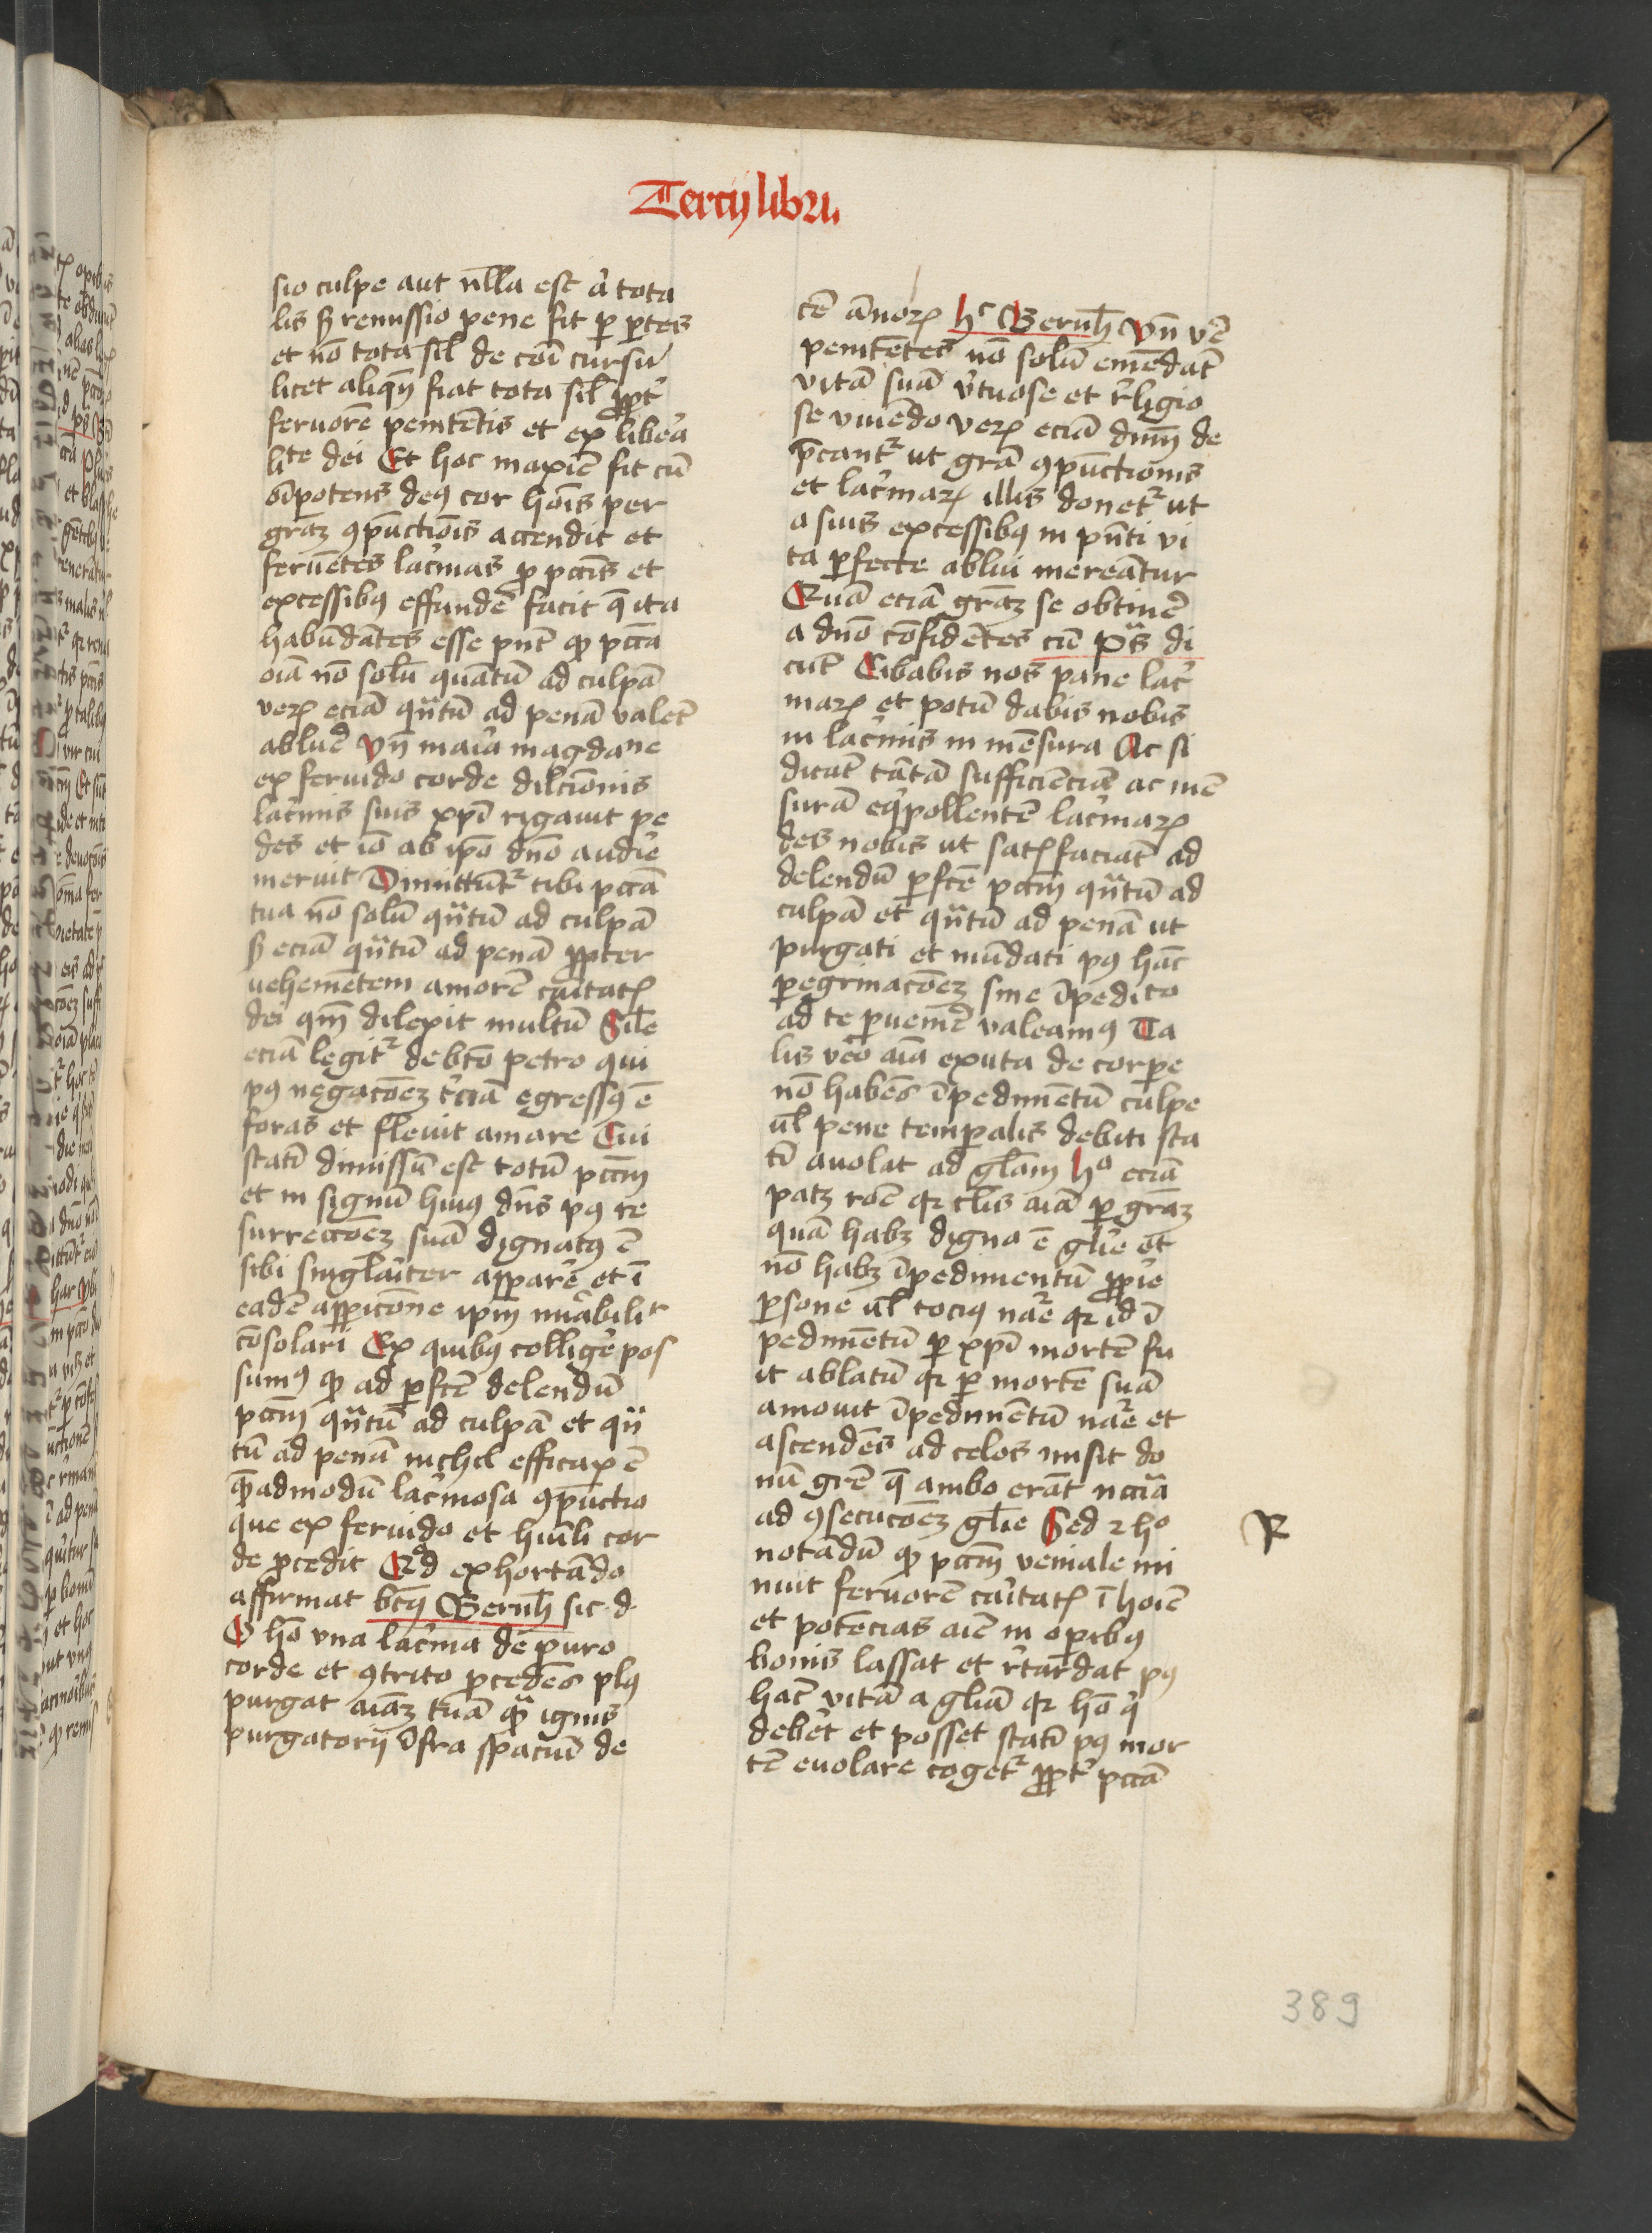 Tercij libri
sio culpe aut nlla est aͭ tota
lis ß remissio pene fit ꝑ ꝑtes
et nō tota sīl de cōi cursu
licet aliqn̄ fiat tota sīl ꝓpt̓
feruorē penitētis et ex lib̓a
lite dei Et hoc maxīe fit cū
oīpotens deꝰ cor hoīs per
grāꝫ ꝯpūctiōis accendit et
feruētes lac̓mas ꝓ pccīs et
excessibꝰ effundē facit q̄ ita
habūdātes esse pn̄t ꝙ pccā
oīa nō solū quātū ad culpā
veꝝ eciā qᷓtū ad penā valēt
abluē̓ Vn̄ maͥa magdane
ex feruido corde dilcīonis
lac̓mis suis xpī rigauit pe
des et iō ab ip̄o dn̄o audīe
meruit Dimittūtᷣ tibi pccā
tua nō solū qᷓtū ad culpā
ß eciā qᷓtū ad penā ꝓpter
vehemētem amorē caͥtatꝭ
dei qm̄ dilexit multū Sīle
eciā legitᷣ de btō petro qui
pꝰ negacōeꝫ t̓ciā egressꝰ ē
foras et fleuit amare Cui
statī dimissū est totū pccm̄
et in signū huiꝰ dn̄s pꝰ re
surreccōeꝫ suā dignatꝰ ē
sibi singlaͥter apparē̓ et ī
eadē appīcōne ip̄m mͥabilit̓
cōsolari Ex quibꝰ colligē̓ pos
sumꝰ ꝙ ad ꝑfcē delendū
pccm̄ qᷓtū ad culpā et qᷓ
tū ad penā nichil efficax ē
q̄admodū lac̓mosa ꝯpūctio
que ex feruido et huīli cor
de ꝓcedit Qᵈ exhortādo
affirmat btꝰ Bernh̄ sic d
O hō vna lac̓ma de puro
corde et ꝯtrito ꝓcedēs plꝰ
purgat aīaꝫ tuā qᷓ ignis
purgatorij īfra spaciū de
cē ānoꝝ hᶜ Bernh̄ Vn̄ v̓e
penitētes nō solū emēdāt
vitā suā v̓tuose et r̓ligio
se viuēdo veꝝ eciā dn̄m de
p̄cantᷣ ut grā ꝯpūctionis
et lac̓maꝝ illis donetᷣ ut
a suis excessibꝰ in pn̄ti vi
ta ꝑfecte ablui mereātur
Quā eciā grāꝫ se obtinē̓
a dn̄o cōfidētes cū pˢ di
cūt Cibabis nos pane lac̓
maꝝ et potū dabis nobis
in lac̓mis in mēsura Ac si
dicāt tātā sufficiēciā ac mē
surā eqͥpollentē lac̓maꝝ
des nobis ut satꝭfaciāt ad
delendū ꝑfcē pccm̄ qᷓtū ad
culpā et qᷓtū ad penā ut
purgati et mūdati pꝰ hāc
ꝑegrinacōeꝫ sine īpedīto
ad te ꝑuenīe valeamꝰ Ta
lis v̓o aīa exuta de corꝑe
nō habēs īpedimētū culpe
ul̄ pene tempalis debiti sta
tī auolat ad glāꝫ Hᵒ eciā
patꝫ rōe qꝛ tlis aīa ꝑ grāꝫ
quā habꝫ digna ē glīe et
nō habꝫ īpedimentū ꝓpͥe
ꝑsone ul̄ tociꝰ nāe qꝛ id ī
pedimētū ꝑ xpī mortē fu
it ablatū qꝛ ꝑ mortē suā
amouit īpedimētū nāe et
ascendēs ad celos misit do
nū grē q̄ ambo erāt nccīa
ad ꝯsecucōeꝫ glīe Sed ꝛ hᵒ
notādū ꝙ pccm̄ veniale mi
nuit feruorē caͥtatꝭ ī hoīe
et potēcias aīe in oꝑibꝰ
bonis lassat et r̓tardat pꝰ
hāc vitā a gliā qꝛ hō qͥ
debēt et posset statī pꝰ mor
tē euolare cogetᷣ ꝓpt̓ pccā
R
389